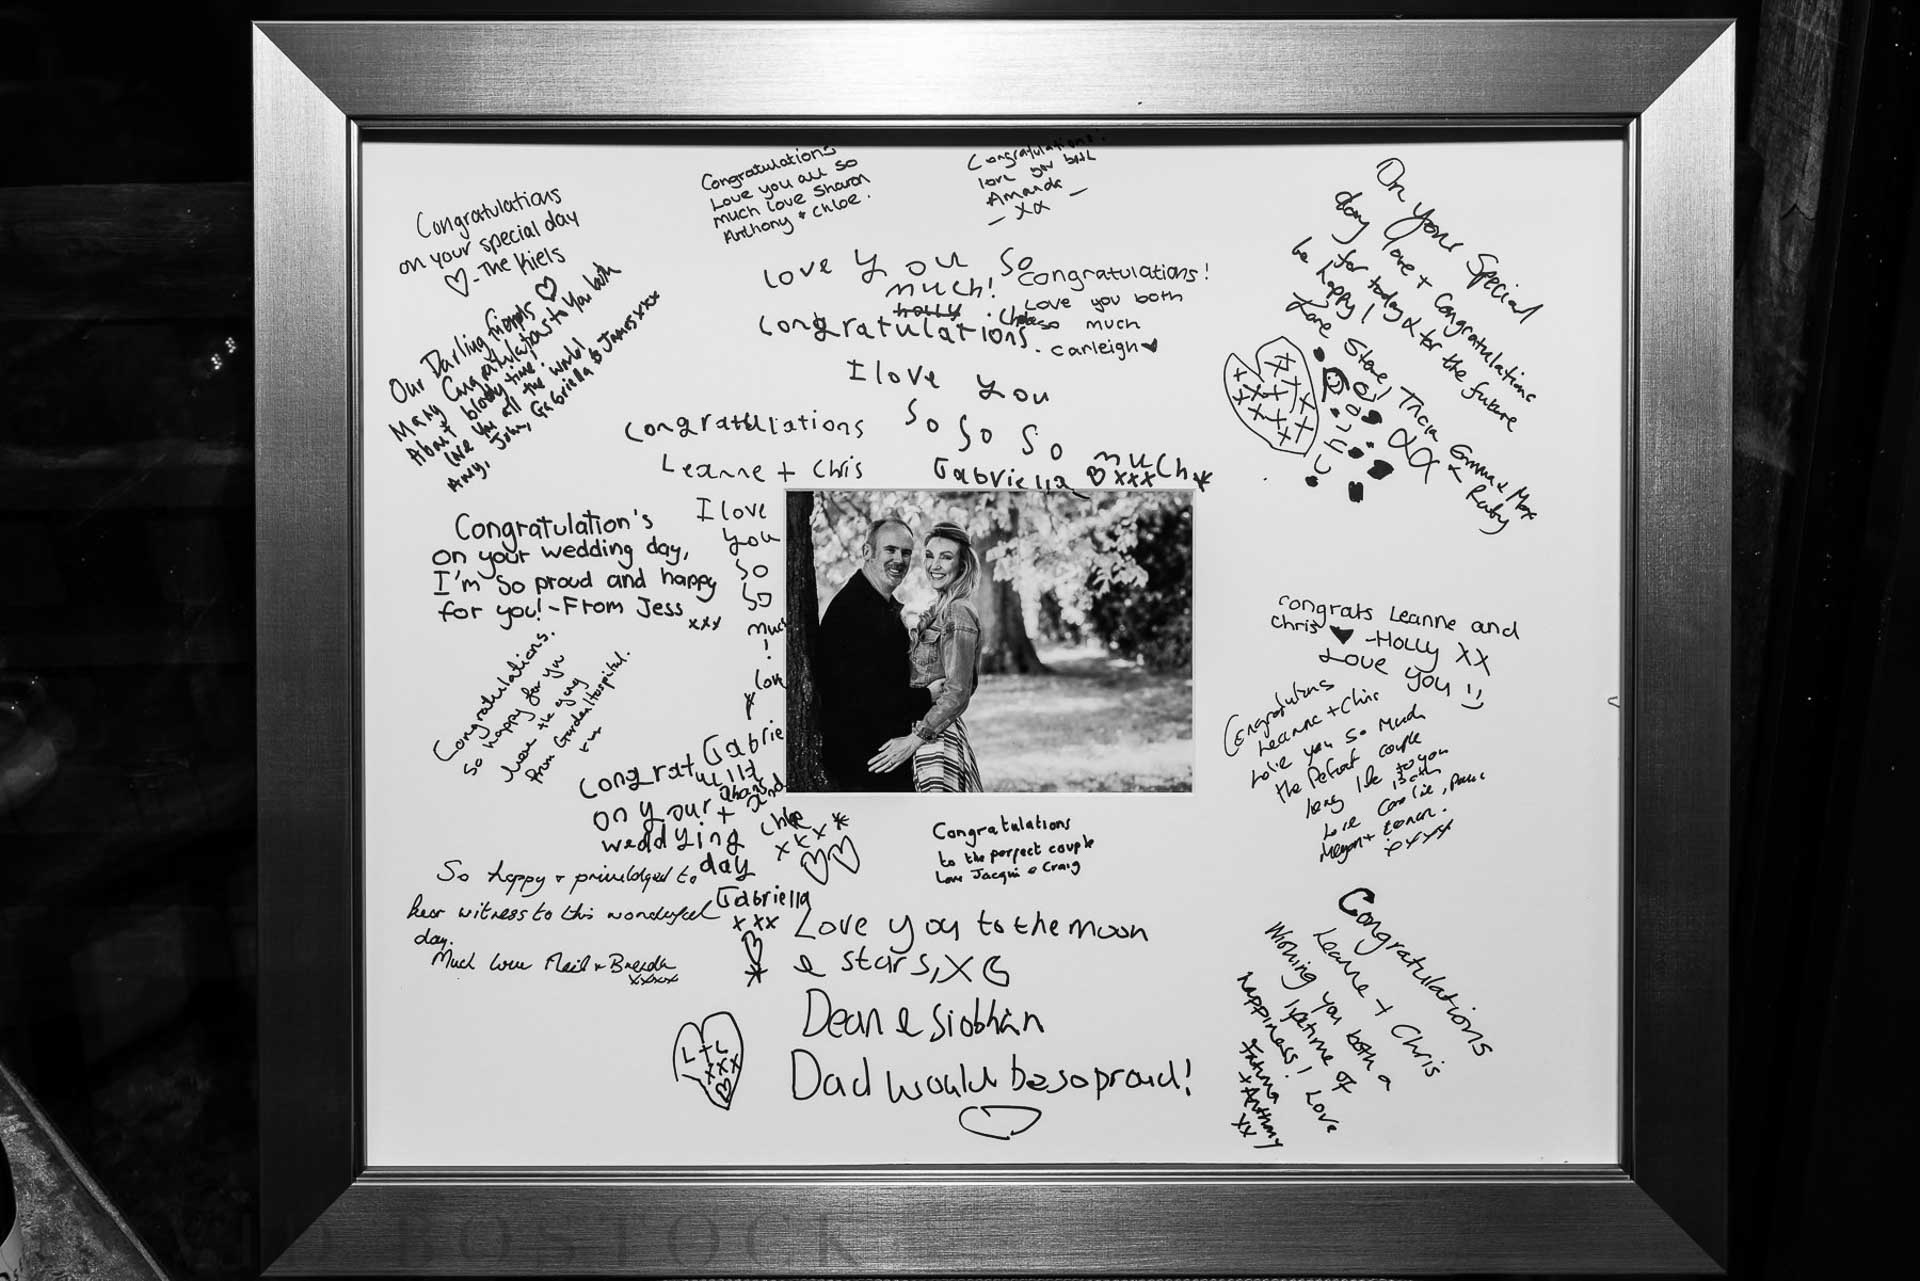 Congratulations
on your special day
♡ - The Kiels
Our Darling friends ♡
Many Congratulations to you both
About bloody time!
love you all the world
Amy, John, Gabriella & James xxx
Congratulations
Love you all so
much love Sharon
Anthony + Chloe.
Congratulations!
love you both
Amanda
- xx -
love you so
much!
holly . Chloe
congratulations
I love you
so so so
much
Gabriella ♡ xxx *
Congratulations!
Love you both
so much
. carleigh ♥
On your Special
day love + Congratulations
for today & for the future
be happy!
Love Steve, Tricia Emma & Max
& Ruby
congratulations
Leanne + Chris
I love
you
so
so
much
!
* love
Gabrie
Congratulation's
on your wedding day,
I'm so proud and happy
for you! - From Jess
xxx
Congratulations.
So happy for you
from Garden Hospital.
congratulations
on your
weddying
day
and
Chloe
xxx *
Gabriella
xxx
♡
*
So happy + priviledged to
bear witness to this wonderful
day.
Much love Neil + Brenda
xxxxx
congrats Leanne and
chris ♥ - HOLLY XX
Love you
Congratulations
Leanne + Chris
Love you so much
the Perfect couple
long life to you
both
love Carlie,
Megan +
xxxx
Congratulations
to the perfect couple
Love Jacqui & Craig
Love you to the moon
& stars, X
Dean & Siobhán
Dad would be so proud!
L + C
xxx
Congratulations
Leanne + Chris
Wishing you both a
lifetime of
happiness! Love
Fatima
+ Anthony
xx
BOSTOCK